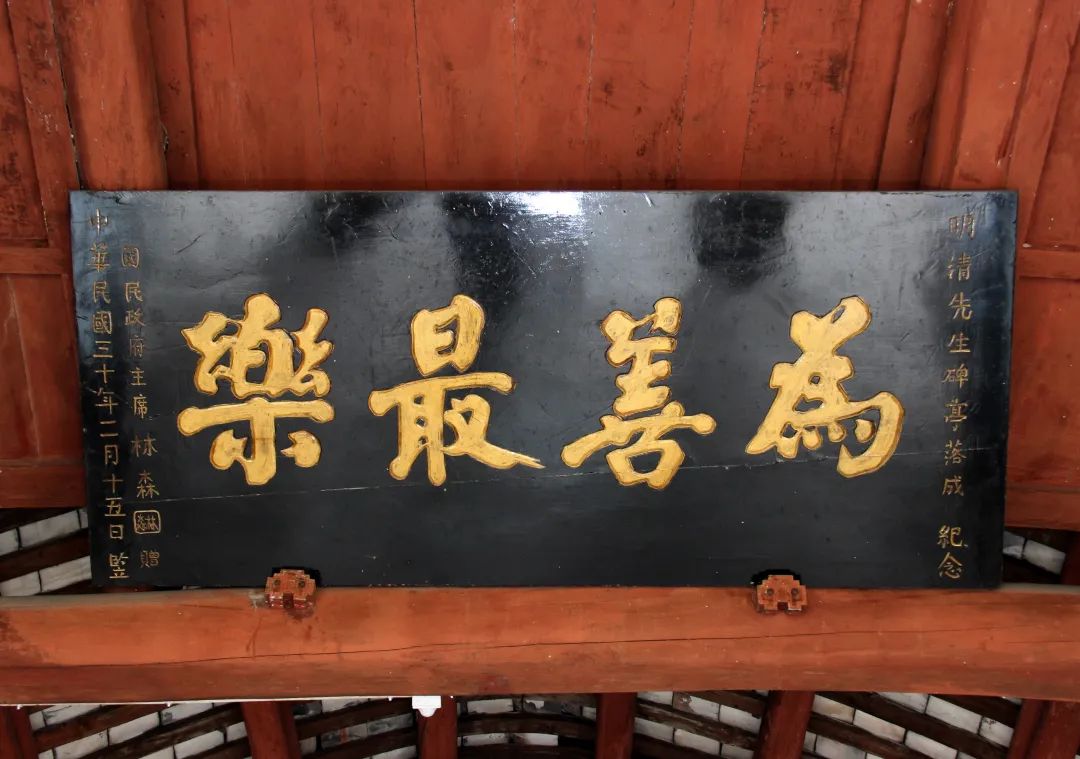 明清先生碑亭落成 紀念
為善最樂
國民政府主席林森 贈
中華民國三十年二月十五日